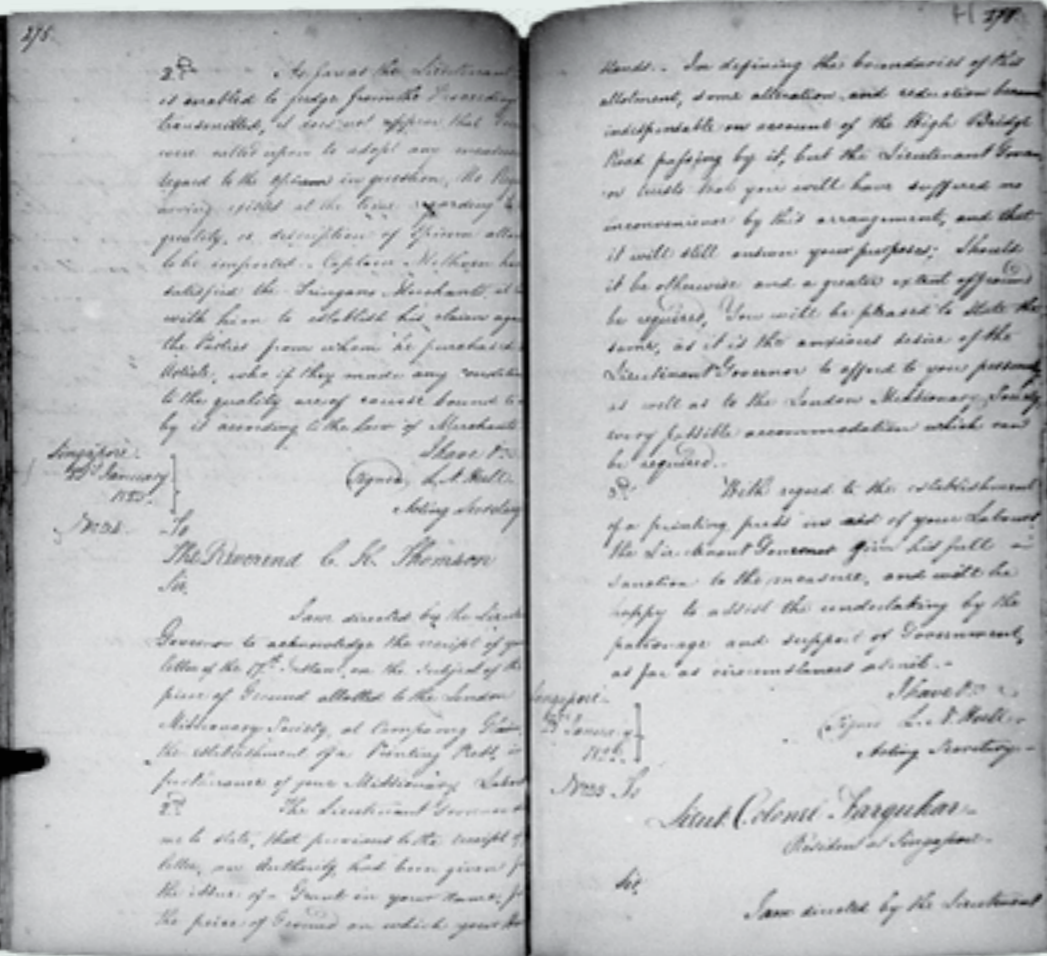 275.
2nd As far as the Lieutenant
is enabled to judge from the Proceedings
transmitted, it does not appear that
were called upon to adopt any measures
regard to the Opium in question, no
existed at the time regarding the
quality, or description of Opium
to be imported. Captain Methven
satisfied the Tringanu Merchants, it
with him to establish his claim
the Parties from whom he purchased
Article, who if they made any
to the quality are of course bound to
by it according to the law of Merchants
I have &c
Singapore
January
1823.
(Signed) L. N. Hull
Acting Secretary
To
The Reverend C. H. Thomson
Sir,
I am directed by the
Governor to acknowledge the receipt of
letter of the 17th Instant, on the Subject of the
piece of Ground allotted to the London
Missionary Society, at Campong Glam
the establishment of a Printing Press, in
furtherance of your Missionary
2nd The Lieutenant Governor
me to state, that previous to the receipt of
letter, an Authority had been given
the issue of a Grant in your Name,
the piece of Ground on which your
stands. In defining the boundaries of this
allotment, some alteration and reduction became
indispensable on account of the High Bridge
Road passing by it, but the Lieutenant
or trusts that you will have suffered no
inconvenience by this arrangement, and that
it will still answer your purposes; Should
it be otherwise and a greater extent of ground
be required, You will be pleased to state the
same, as it is the anxious desire of the
Lieutenant Governor to afford to you personally
as well as to the London Missionary Society
every possible accommodation which can
be required.
3d With regard to the establishment
of a printing press in aid of your Labours
the Lieutenant Governor gives his full
sanction to the measure, and will be
happy to assist the undertaking by the
patronage and support of Government,
as far as circumstances admit.
I have &c
Singapore
(Signed) L. N. Hull
Acting Secretary
To
Lieut. Colonel Farquhar
Resident at Singapore
Sir,
I am directed by the Lieutenant